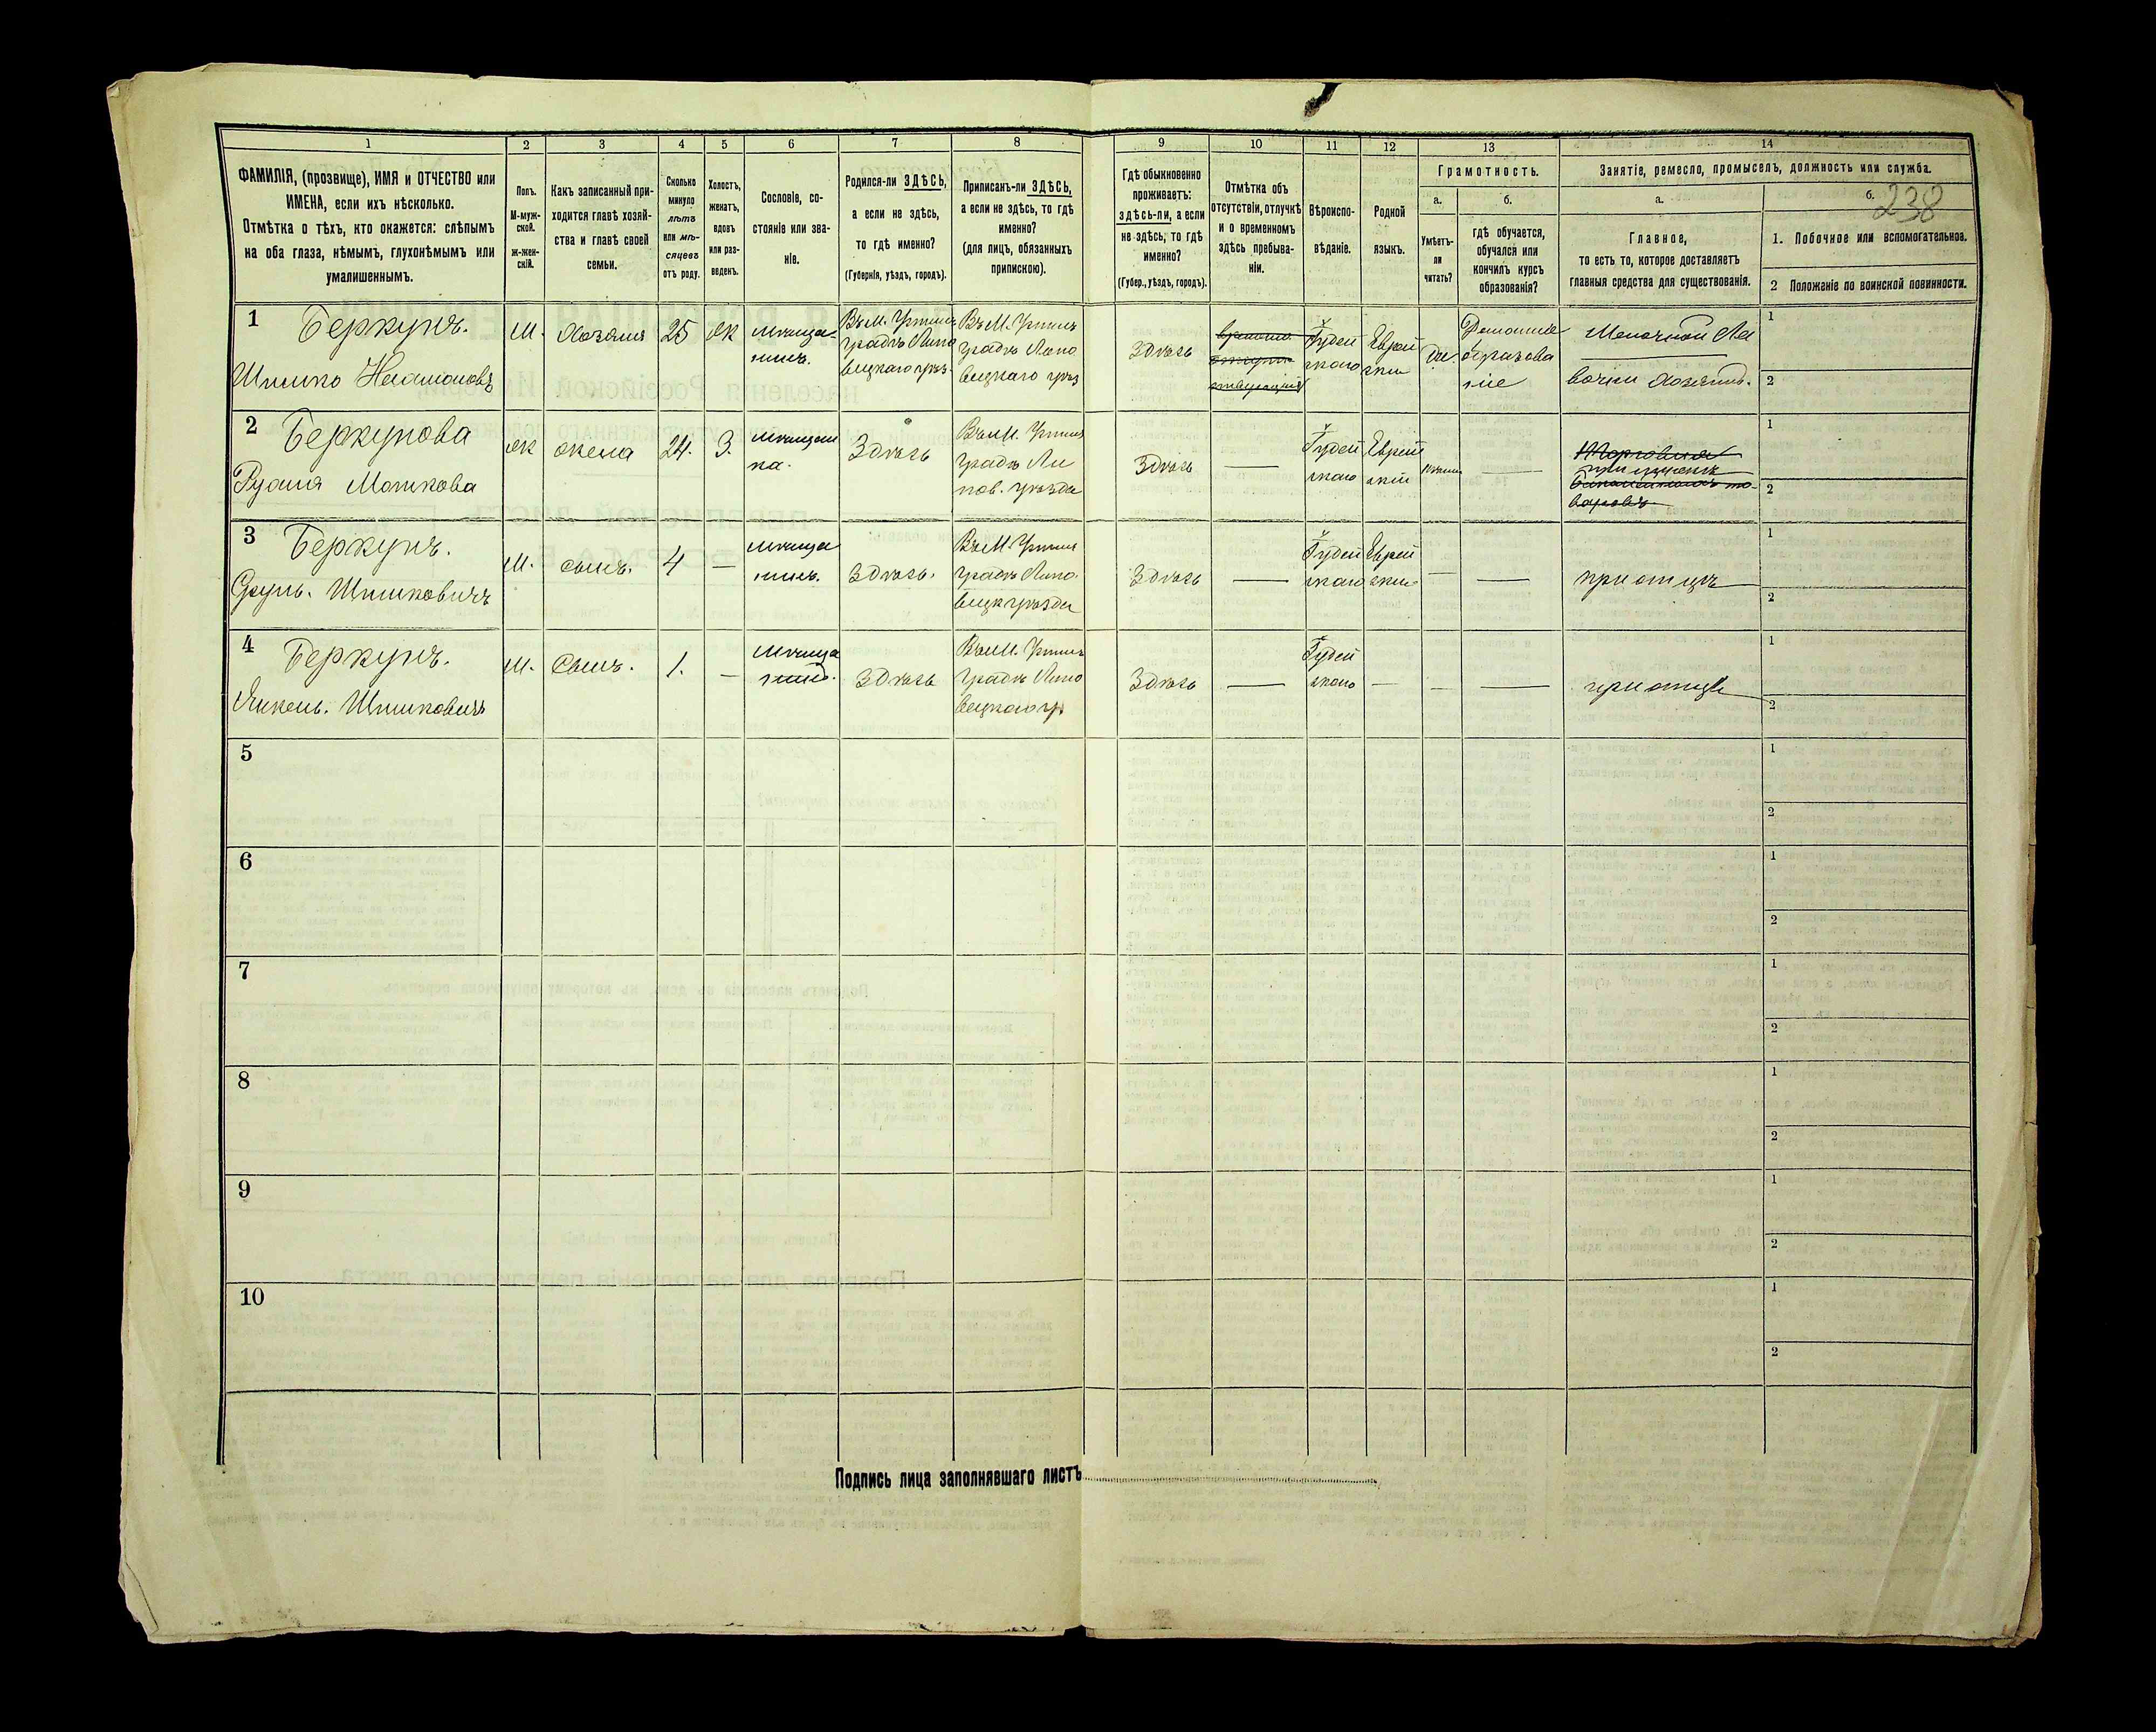 1
2
3
4
5
6
7
8
9
10
11
12
13
14
ФАМИЛІЯ, (прозвище), ИМЯ и ОТЧЕСТВО или
ИМЕНА, если ихъ нѣсколько.
Отмѣтка о тѣхъ, кто окажется: слѣпымъ
на оба глаза, нѣмымъ, глухонѣмымъ или
умалишеннымъ.
Полъ.
М-муж-
ской.
Ж-жен-
скій.
Какъ записанный при-
ходится главѣ хозяй-
ства и главѣ своей
семьи.
Сколько
минуло
лѣтъ
или мѣ-
сяцевъ
отъ роду.
Холостъ,
женатъ,
вдовъ
или раз-
веденъ.
Сословіе, со-
стояніе или зва-
ніе.
Родился-ли ЗДѢСЬ,
а если не здѣсь,
то гдѣ именно?
(Губернія, уѣздъ, городъ).
Приписанъ-ли ЗДѢСЬ,
а если не здѣсь, то гдѣ
именно?
(для лицъ, обязанныхъ
припискою).
Гдѣ обыкновенно
проживаетъ:
здѣсь-ли, а если
не здѣсь, то гдѣ
именно?
(Губер., уѣздъ, городъ).
Отмѣтка объ
отсутствіи, отлучкѣ
и о временномъ
здѣсь пребыва-
ніи.
Вѣроиспо-
вѣданіе.
Родной
языкъ.
Грамотность.
а.
Умѣетъ-
ли
читать?
б.
гдѣ обучается,
обучался или
кончилъ курсъ
образованія?
Занятіе, ремесло, промыселъ, должность или служба.
а.
Главное,
то есть то, которое доставляетъ
главныя средства для существованія.
б.
238
1. Побочное или вспомогательное.
2 Положеніе по воинской повинности.
1 Беркунъ.
Шмшко
М.
Хозяин
25
Ж
мѣща-
нинъ.
Въ М.
градѣ Липо
вецкаго уѣз.
Въ М.
градѣ Липо
вецкаго уѣз
Здѣсь
Іудей
скаго
Еврей
скій
Да
Домашнее
образова
ніе
Мелочной Ла
вочки Хозяинъ.
1
2
2 Беркунова
Мошкова
Ж
жена
24.
З.
мѣщан
ка.
Здѣсь
Въ М.
градѣ Ли
пов. уѣзда
Здѣсь
—
Іудей
скаго
Еврей
скій
—
товаровъ
1
2
3 Беркунъ.
Сруль. Шмшковичъ
М.
сынъ.
4
—
мѣща
нинъ.
Здѣсь.
Въ М.
градѣ Липо
вецк уѣзда
Здѣсь
—
Іудей
скаго
Еврей
скій
—
—
при отцѣ
1
2
4 Беркунъ.
Янкель. Шмшковичъ
М.
Сынъ.
1.
—
мѣща
нинъ.
Здѣсь
Въ М.
градѣ Липо
вецкаго у
Здѣсь
—
Іудей
скаго
—
—
—
при отцѣ
1
2
5
1
2
6
1
2
7
1
2
8
1
2
9
1
2
10
1
2
Подпись лица заполнявшаго листъ